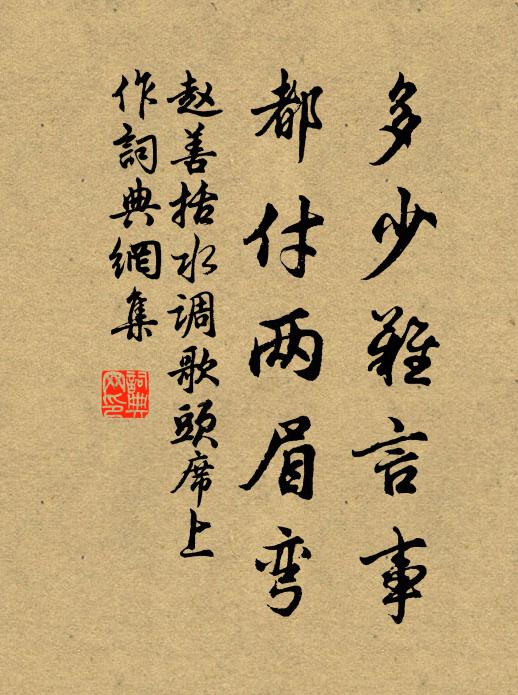 多少難言事
都付两眉弯
赵善括水调歌頭席上
作詞典網集
詞典
网印